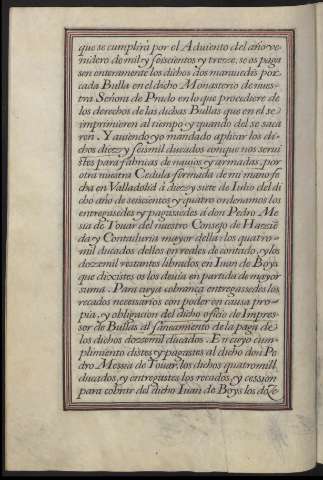 que se cumplirà por el Aduiento del año ve-
nidero de mil y seiscientos y treze, se os paga
sen enteramente los dichos dos marauedis por
cada Bulla en el dicho Monasterio de nues-
tra Señora de Prado en lo que procediere de
los derechos de las dichas Bullas que en el se
imprimieren al tiempo y quando del se saca
ren. Y auiendo yo mandado aplicar los di-
chos diez y seis mil ducados con que nos serui
stes para fabricas de nauios y armadas, por
otra nuestra Cedula firmada de mi mano fe
cha en Valladolid à diez y siete de Iulio del di
cho año de seiscientos y quatro ordenamos los
entregassedes y pagassedes à don Pedro Me
sia de Touar del nuestro Consejo de Hazie
da y Contaduria mayor della: los quatro-
mil ducados dellos en reales de contado, y los
doze mil restantes librados en Iuan de Boys
que dixistes os los deuia en partida de mayor
suma. Para cuya cobrança entregassedes los
recados necessarios con poder en causa pro-
pia, y obligacion del dicho oficio de Impres-
sor de Bullas al saneamiento de la paga de
los dichos doze mil ducados. En cuyo cum-
plimiento distes y pagastes al dicho don Pe
dro Messia de Touar, los dichos quatro mill
ducados, y entregastes los recados y cession
para cobrar del dicho Iuan de Boys los doze